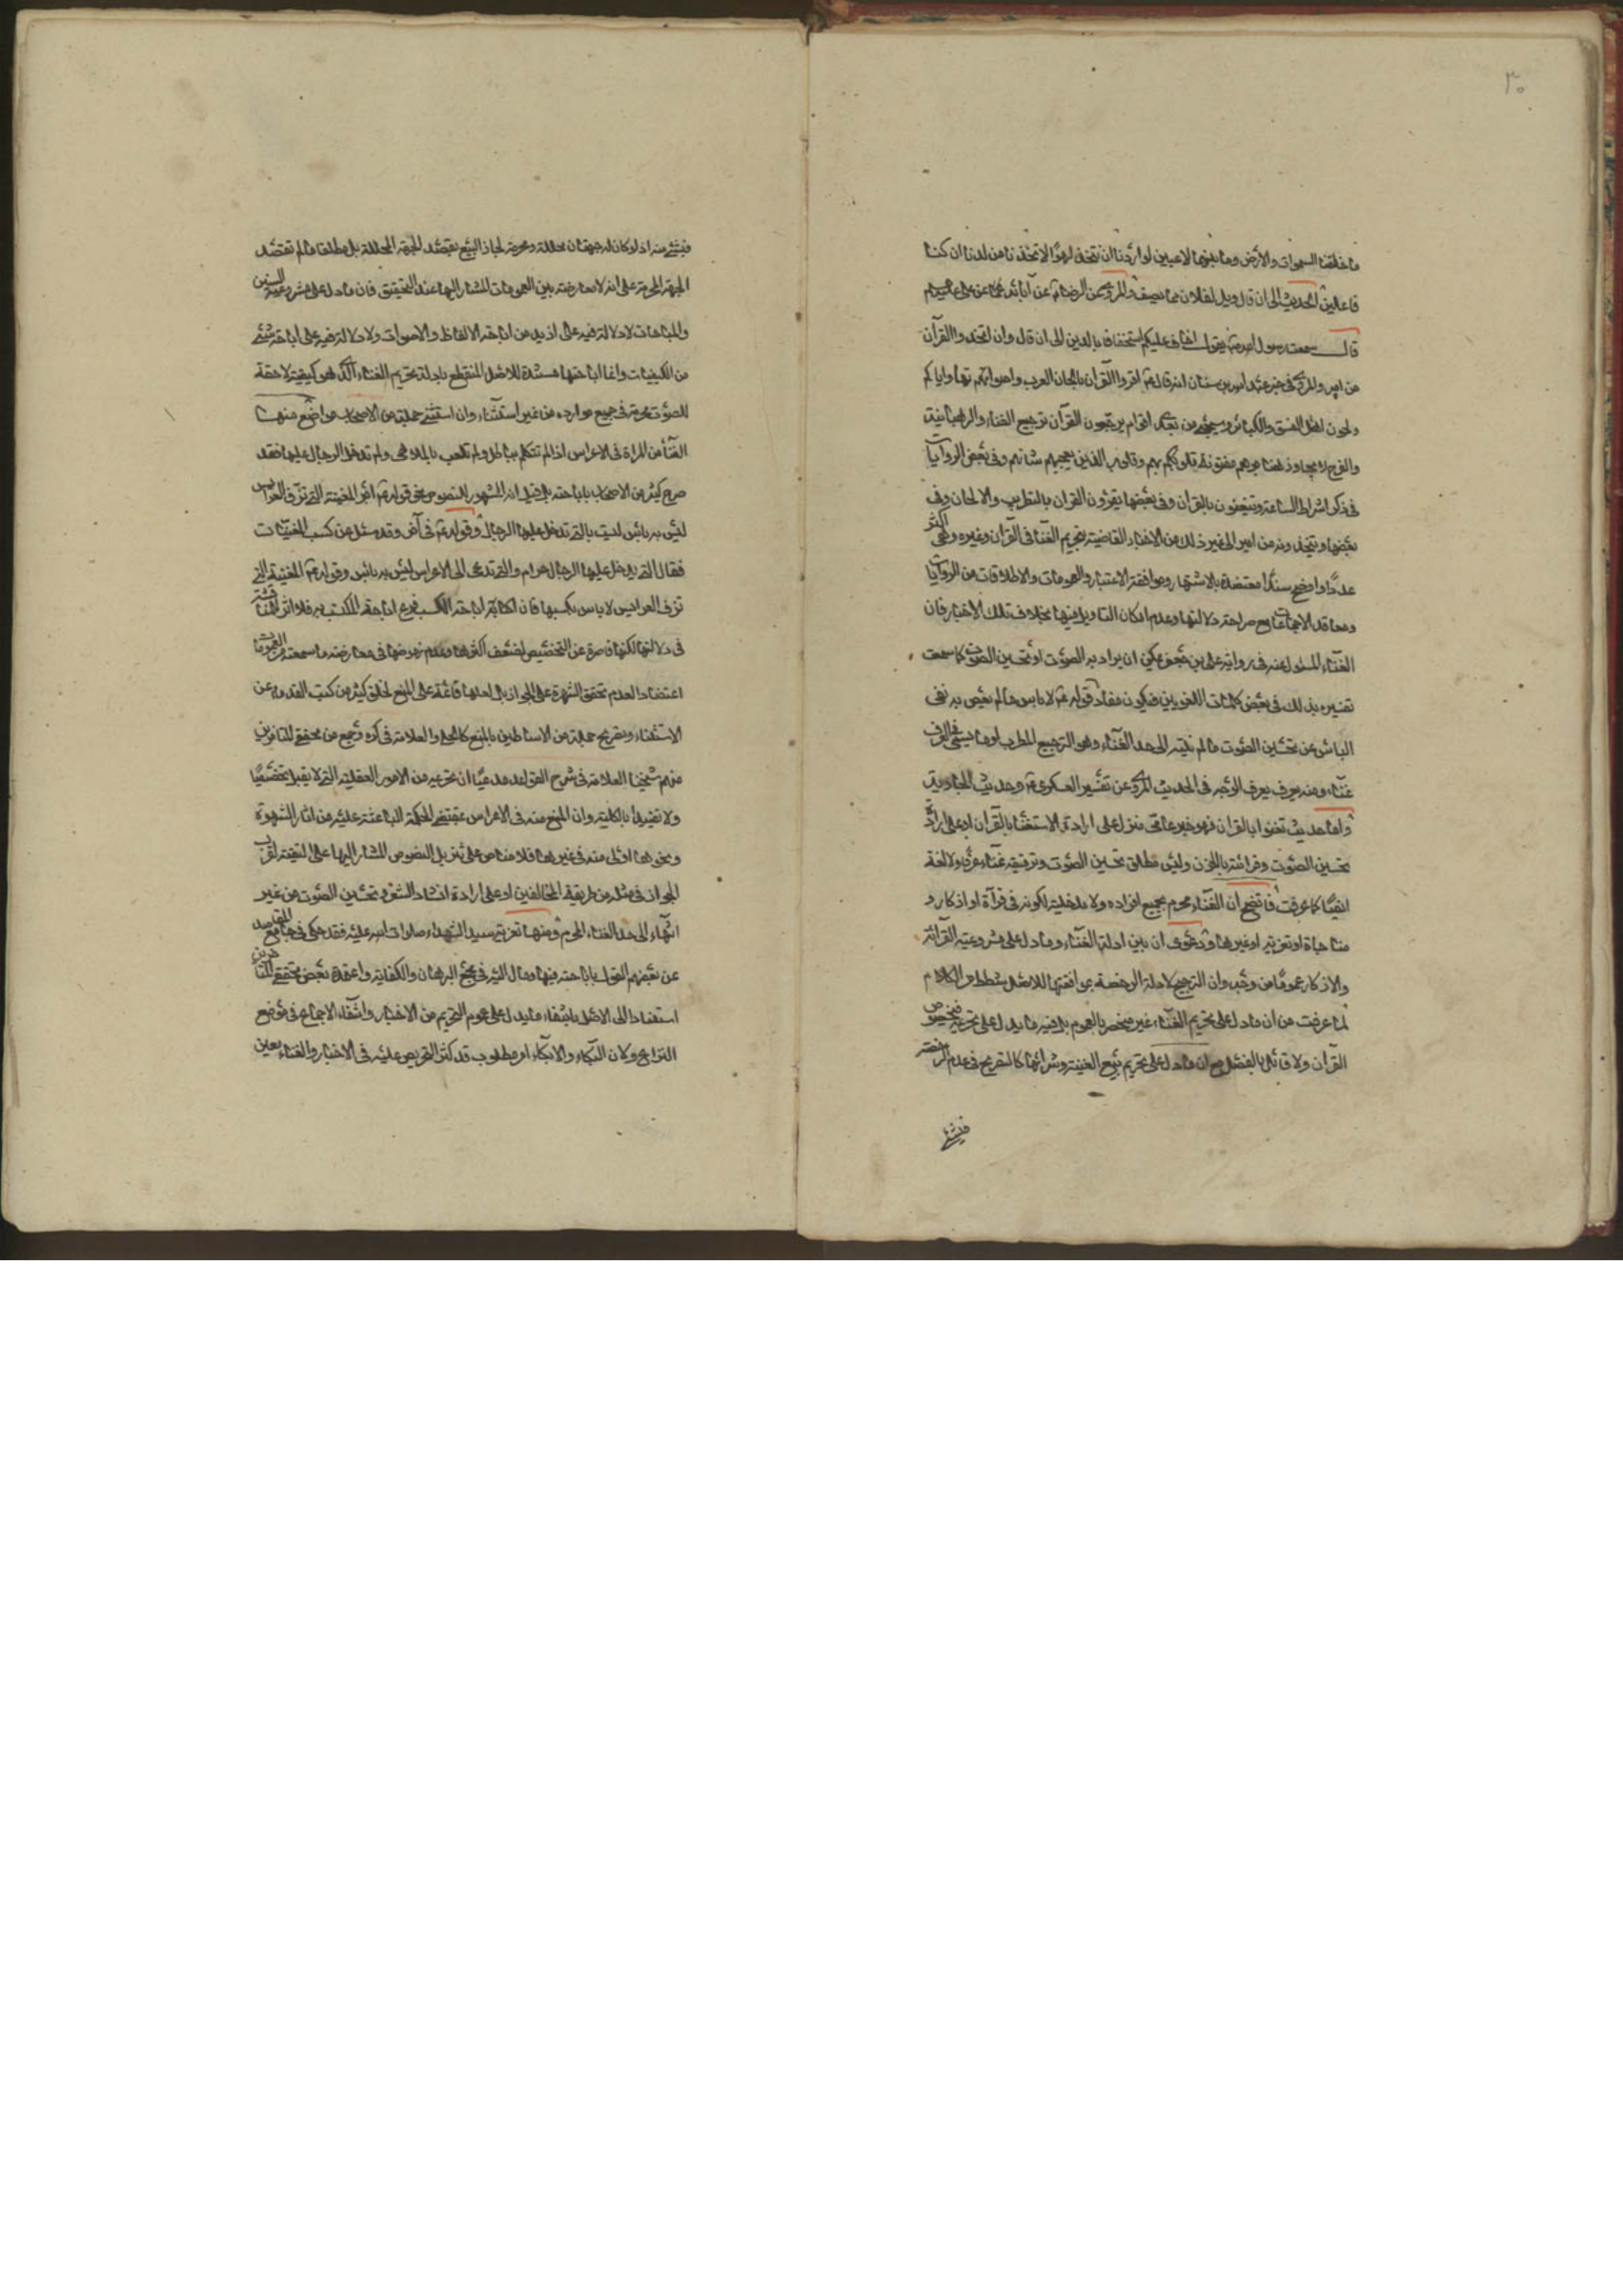 ٣٠
ما خلقنا السموات والأرض وما بينهما لاعبين لو اردنا ان نتخذ لهوًا لاتخذناه من لدنا ان كنا
فاعلين الحديث الى ان قال ويل لفلان مما يصف والمروي عن الرضا عن آبائه عن علي
قال سمعت رسول الله ص يقول اخاف عليكم استخفافا بالدين الى ان قال وان تتخذوا القرآن
مزامير والمروي في خبر عبد الله بن سنان انه قال اقرؤا القرآن بالحان العرب واصواتهم واياكم
ولحون اهل الفسق والكبائر وسيجئ من بعدي اقوام يرجعون القرآن ترجيع الغناء والرهبانية
والنوح لا يجاوز حناجرهم مفتونة قلوبهم وقلوب الذين يعجبهم شانهم وفي بعض الروايات
في ذكر اشراط الساعة ويتغنون بالقرآن وفي بعضها يقرؤن القران بالتطريب والالحان وفي
بعضها ويتخذونه مزامير الى غير ذلك من الاخبار القاضية بتحريم الغنا في القرآن وغيره وهي اكثر
عددًا واوضح سندًا معتضدة بالاشتهار وموافقة الاعتبار والعمومات والاطلاقات من الروايات
ومعاقد الاجماعات مع صراحة دلالتها وعدم امكان التاويل فيها بخلاف تلك الاخبار فان
الغناء المسئول عنه في رواية علي بن جعفر يمكن ان يراد به الصوت او تحسين الصوت كما سمعت
تفسيره بذلك في بعض كلمات اللغويين فيكون مفاد قوله لا باس ما لم يعص به نفى
الباس عن تحسين الصوت ما لم ينته الى حد الغناء وهو الترجيع المطرب او ما يسمى في العرف
غناء ومنه يعرف الوجه في الحديث المروي عن تفسير العسكري وحديث الجاريتين
واما حديث تغنوا بالقران فهو خبر عامي منزل على ارادة الاستغنا بالقرآن او على ارادة
تحسين الصوت وقرائته بالحزن وليس مطلق تحسين الصوت وترقيقه غناء عرفا ولا لغة
ايضًا كما عرفت فاتضح ان الغناء محرم بجميع افراده ولا مدخلية لكونه في قرآة او اذكار و
مناجاة او تعزية او غيرها ودعوى ان بين ادلة الغناء وما دل على مشروعية القرائة
والاذكار عموما من وجه وان الترجيح لادلة الرخصة بموافقتها للاصل شطط من الكلام
لما عرفت من ان ما دل على تحريم الغناء غير منحصر بالعموم بل فيه ما يدل على تحريمه في خصوص
القرآن ولا قائل بالفصل مع ان ما دل على تحريم بيع المغنية وشرائها كالصريح في عدم الرخصة
في شئ منه اذ لو كان له جهتان محللة ومحرمة لجاز البيع بقصد الجهة المحللة بل مطلقا ما لم تقصد
الجهة المحرمة على انه لا معارضة بين العمومات المشار اليها عند التحقيق فان ما دل على مشروعية السنن
والمباحات لا دلالة فيه على ازيد من اباحة الالفاظ والاصوات ولا دلالة فيه على اباحة شئ
من الكيفيات وانما اباحتها مستندة للاصل المنقطع بادلة تحريم الغناء الذي هو كيفية لاحقة
للصوت محرمة في جميع موارده من غير استثناء وان استثنى جملة من الاصحاب مواضع منها
الغنا من المراة في الاعراس اذا لم تتكلم بباطل ولم تلعب بالملاهي ولم تدخل الرجال عليها فقد
صرح كثير من الاصحاب باباحته بل قيل انه المشهور للنصوص نحو قوله اجر المغنية التي تزف العرائس
ليس به باس ليست بالتي تدخل عليها الرجال وقوله في آخر وقد سئل عن كسب المغنيات
فقال التي يدخل عليها الرجال حرام والتي تدعى الى الاعراس ليس به باس وقوله المغنية التي
تزف العرايس لا باس بكسبها فان اباحة الكسب فرع اباحة المكتسب به فلا اثر للمناقشة
في دلالتها لكنها قاصرة عن التخصيص لضعف اكثرها وعدم نهوضها في معارضة ما سمعته من العمومات
اعتضادا لعدم تحقق الشهرة على الجواز بل لعلها قائمة على المنع لخلو كثير من كتب القدماء عن
الاستثناء وتصريح جملة من الاساطين بالمنع كالحلي والعلامة في كره وجمع من محققي المتاخرين
منهم شيخنا العلامة في شرح القواعد مدعيًا ان تحريمه من الامور العقلية التي لا تقبل تخصيصًا
ولا تقييدا بالكلية وان المنع منه في الاعراس بمقتضى الحكمة الباعثة عليه من اثار الشهوة
ونحوها اولى منه في غيرها فلا مناص على تنزيل النصوص المشار اليها على التقية لقرب
الجواز في مثله من طريقة المخالفين او على ارادة انشاد الشعر وتحسين الصوت من غير
انتهاء الى حد الغناء المحرم ومنها تعزية سيد الشهداء صلوات الله عليه فقد حكى في جامع المقاصد
عن بعضهم القول باباحته فيها ومال اليه في مجمع البرهان والكفاية واعتمده بعض محققي المتاخرين
استنادا الى الاصل بانتفاء ما يدل على عموم التحريم من الاخبار وانتفاء الاجماع في موضع
النزاع ولان البكاء والابكاء امر مطلوب قد كثر التحريص عليه في الاخبار والغناء يعين